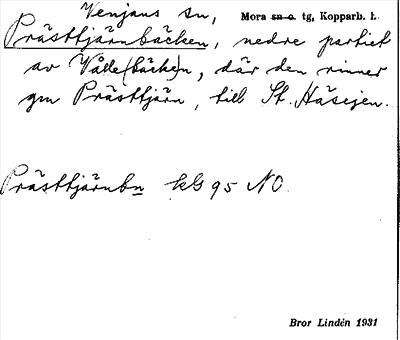 Venjans sn, Mora sn o. tg, Kopparb. l.
Prästtjärnbäcken, nedre partiet
av Valle(bäcke)n, där den rinner
gm Prästtjärn, till St. Häsjen.
Prästtjärnbn kG 95 NO.
Bror Lindén 1931